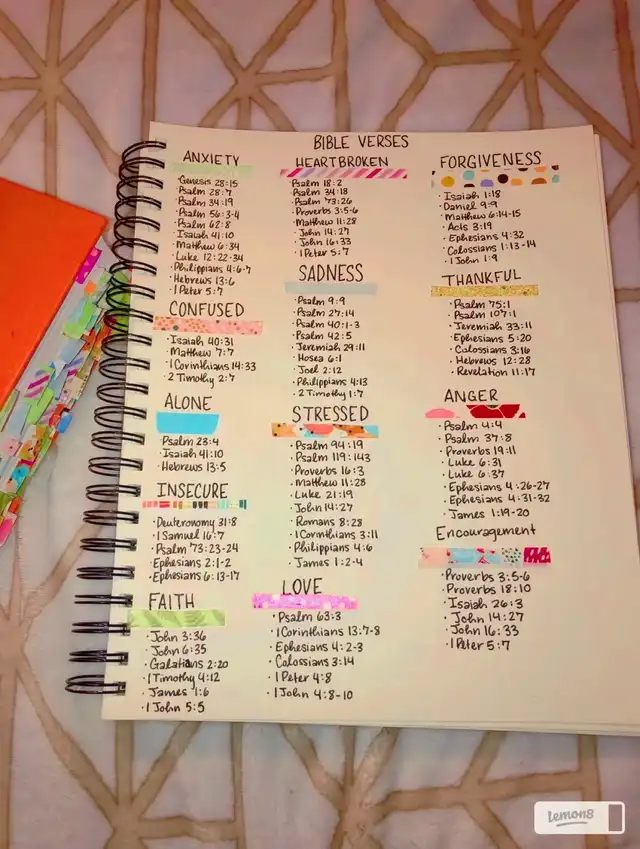 BIBLE VERSES
ANXIETY
· Genesis 28:15
· Psalm 28:7
· Psalm 34:19
· Psalm 56:3-4
· Psalm 62:8
· Isaiah 41:10
· Matthew 6:34
· Luke 12:22-34
· Philippians 4:6-7
· Hebrews 13:6
· 1 Peter 5:7
CONFUSED
· Isaiah 40:31
· Matthew 7:7
· 1 Corinthians 14:33
· 2 Timothy 2:7
ALONE
· Psalm 23:4
· Isaiah 41:10
· Hebrews 13:5
INSECURE
· Deuteronomy 31:8
· 1 Samuel 16:7
· Psalm 73:23-24
· Ephesians 2:1-2
· Ephesians 6:13-17
FAITH
· John 3:36
· John 6:35
· Galatians 2:20
· 1 Timothy 4:12
· James 1:6
· 1 John 5:5
HEARTBROKEN
· Psalm 18:2
· Psalm 34:18
· Psalm 73:26
· Proverbs 3:5-6
· Matthew 11:28
· John 14:27
· John 16:33
· 1 Peter 5:7
SADNESS
· Psalm 9:9
· Psalm 27:14
· Psalm 40:1-3
· Psalm 42:5
· Jeremiah 29:11
· Hosea 6:1
· Joel 2:12
· Philippians 4:13
· 2 Timothy 1:7
STRESSED
· Psalm 94:19
· Psalm 119:143
· Proverbs 16:3
· Matthew 11:28
· Luke 21:19
· John 14:27
· Romans 8:28
· 1 Corinthians 3:11
· Philippians 4:6
· James 1:2-4
LOVE
· Psalm 63:3
· 1 Corinthians 13:7-8
· Ephesians 4:2-3
· Colossians 3:14
· 1 Peter 4:8
· 1 John 4:8-10
FORGIVENESS
· Isaiah 1:18
· Daniel 9:9
· Matthew 6:14-15
· Acts 3:19
· Ephesians 4:32
· Colossians 1:13-14
· 1 John 1:9
THANKFUL
· Psalm 75:1
· Psalm 107:1
· Jeremiah 33:11
· Ephesians 5:20
· Colossians 3:16
· Hebrews 12:28
· Revelation 11:17
ANGER
· Psalm 4:4
· Psalm 37:8
· Proverbs 19:11
· Luke 6:31
· Luke 6:37
· Ephesians 4:26-27
· Ephesians 4:31-32
· James 1:19-20
Encouragement
· Proverbs 3:5-6
· Proverbs 18:10
· Isaiah 26:3
· John 14:27
· John 16:33
· 1 Peter 5:7
Lemon8